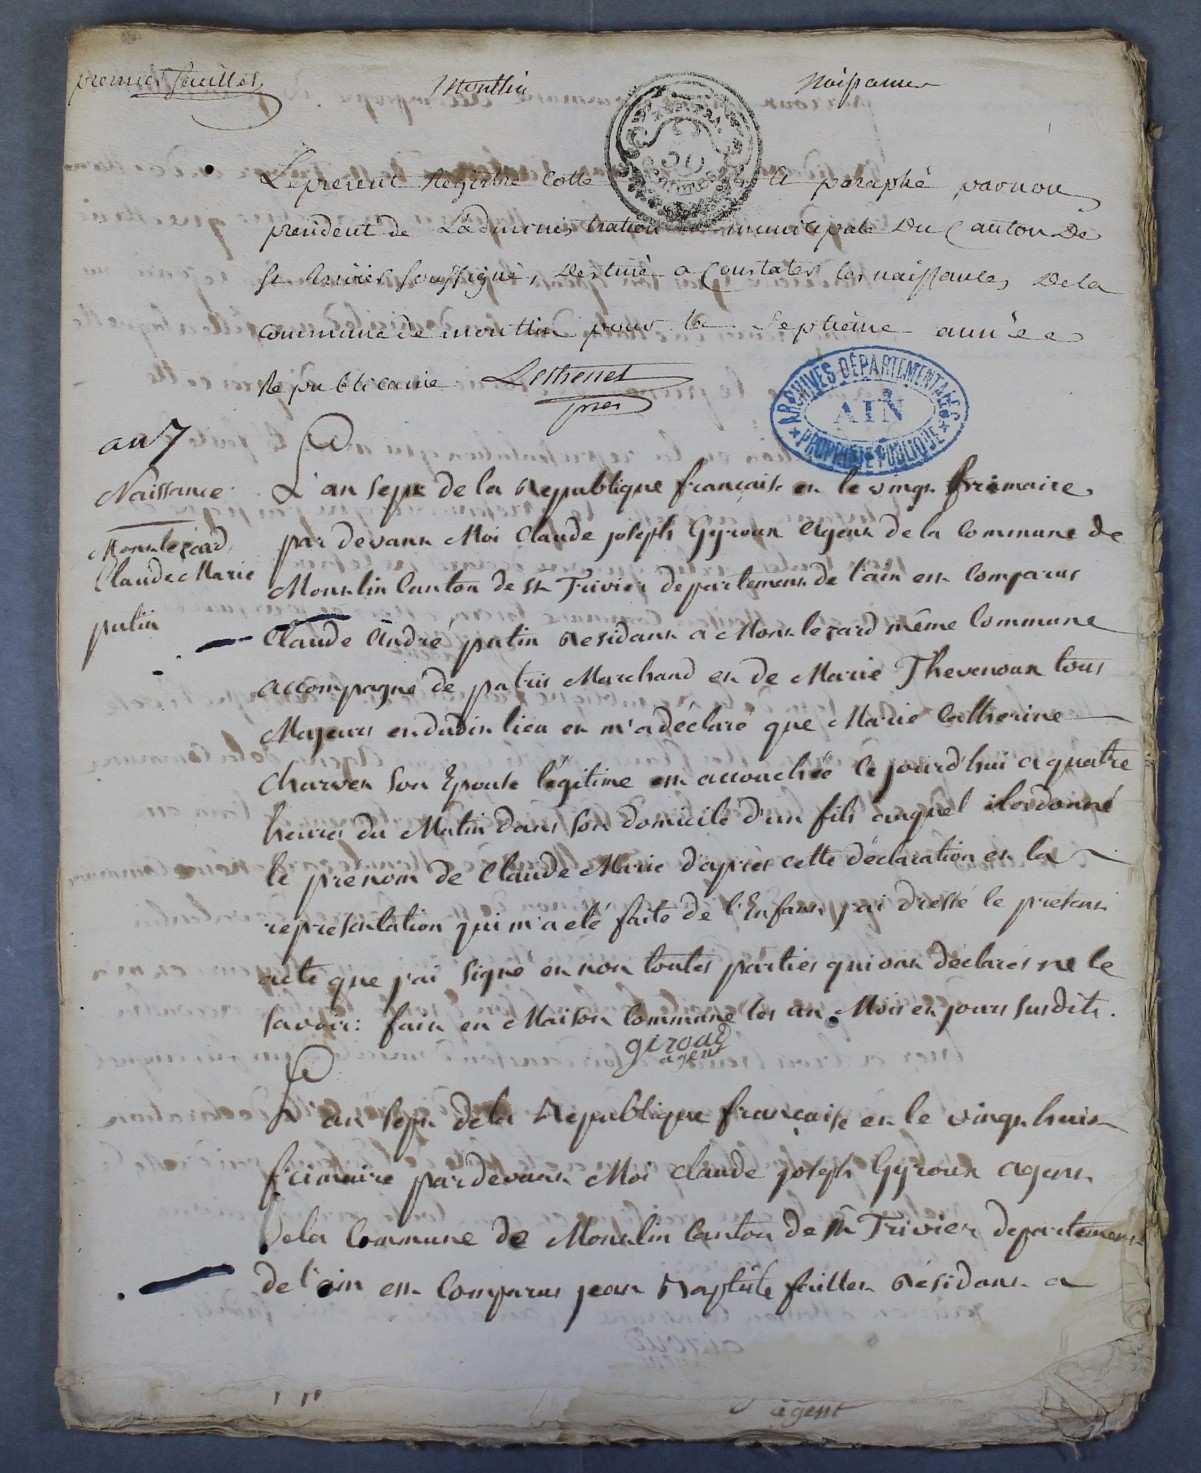 premier feuillet
Montlin
Naissances
Le present Registre Cotté et paraphé par nou
president de Ladministration municipale Du Canton De
St trivier soussigné, Destiné a Constater les naissances De la
commune de montlin pour la Septieme année
Republicaine
pres
ARCHIVES DÉPARTEMENTALES
AIN
PROPRIÉTÉ PUBLIQUE
an 7
Naissance
Montlezard
Claude Marie
putin
L'an sept de la Republique française et le vingt frimaire
par devant Moi Claude joseph Gyroux Agent de la Commune de
Montlin Canton de st Trivier departement de l'ain est Comparus
Claude André putin Residant a Montlezard même Commune
accompagné de Marchand et de Marie Thevenoux tous
Majeurs dudit lieu et m'a déclaré que Marie Catherine
Charvet Son Epouse légitime est accouchée Cejourd'hui a quatre
heures du Matin dans son domicile d'un fils auquel il ordonné
le prenom de Claude Marie d'après cette déclaration et la
representation qui m'a eté faite de l'Enfant j'ai dressé le present
acte que j'ai Signé et non toutes parties qui ont déclarés ne le
savoir: fait en Maison Commune les an Mois et jours susdits.
giroud
agent
L'an sept de la Republique française et le vingt huit
frimaire pardevant Moi Claude joseph Gyroux agent
de la Commune de Montlin Canton de st Trivier departement
de l'ain est Comparus jean Baptiste feillet Résidant a
agent